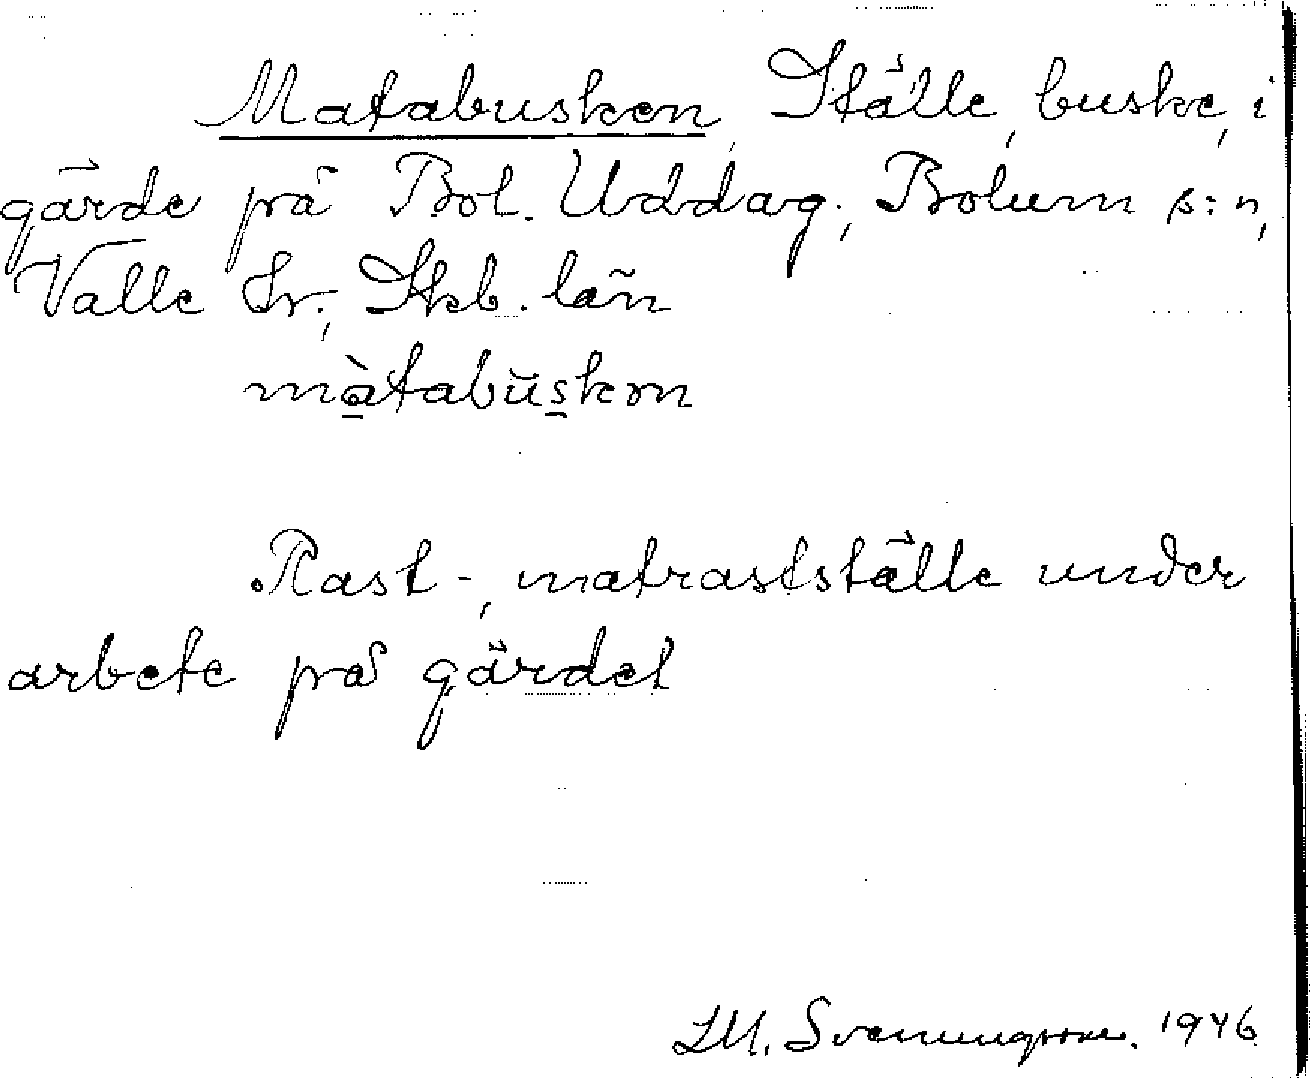 Matabusken, Ställe, buske, i
gärde på Bol. Uddag., Bolum s:n,
Valle hr., Skb. län
màtabŭskɔn
Rast-, matrastställe under
arbete på gärdet
Svenungsson. 1946